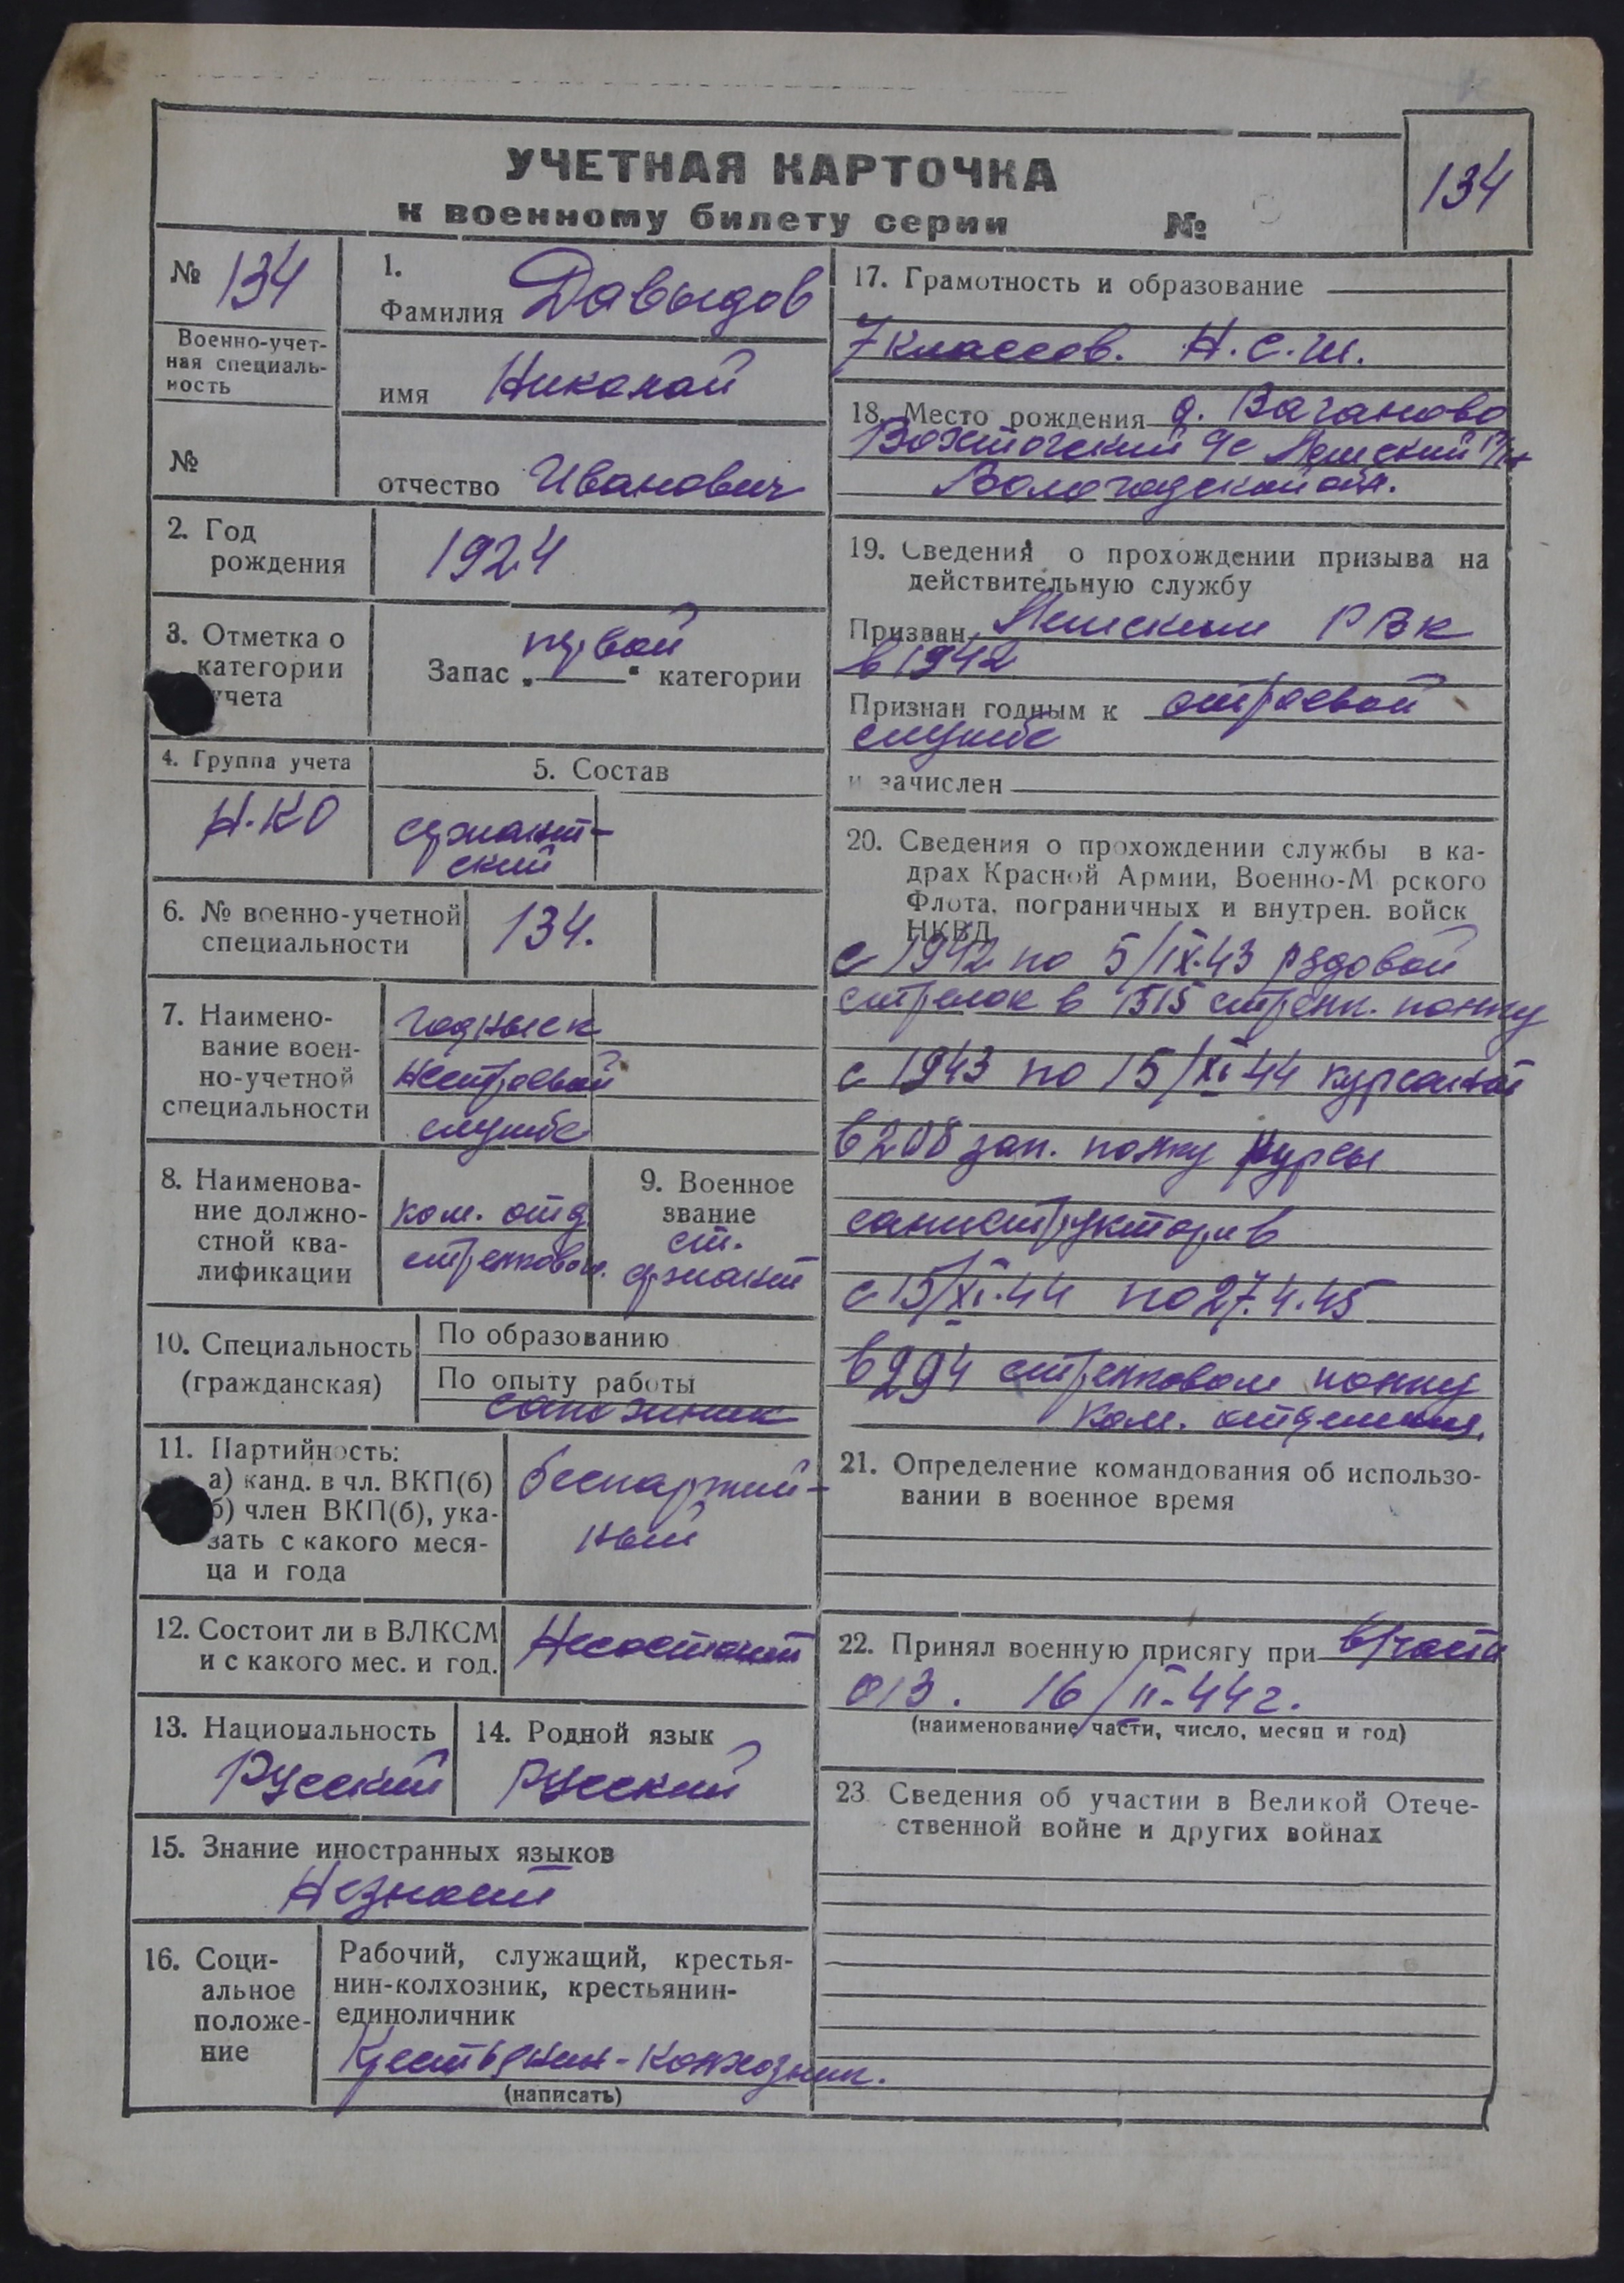 УЧЕТНАЯ КАРТОЧКА
к военному билету серии №
134
№ 134
Военно-учет-
ная специаль-
ность
№
1.
Фамилия Давыдов
имя Николай
отчество Иванович
2. Год
рождения
1924
3. Отметка о
категории
учета
первой
Запас „ “ категории
4. Группа учета
Н.КО
5. Состав
сержант-
ский
6. № военно-учетной
специальности
134.
7. Наимено-
вание воен-
но-учетной
специальности
годные к
нестроевой
службе
8. Наименова-
ние должно-
стной ква-
лификации
ком. отд
стрелковом.
9. Военное
звание
ст.
сержант
10. Специальность
(гражданская)
По образованию
По опыту работы
сапожник
11. Партийность:
а) канд. в чл. ВКП(б)
б) член ВКП(б), ука-
зать с какого меся-
ца и года
беспартий-
ный
12. Состоит ли в ВЛКСМ
и с какого мес. и год.
Несостоит
13. Национальность
Русский
14. Родной язык
русский
15. Знание иностранных языков
Незнает
16. Соци-
альное
положе-
ние
Рабочий, служащий, крестья-
нин-колхозник, крестьянин-
единоличник
Крестьянин-колхозник.
(написать)
17. Грамотность и образование
7 классов. Н.С.Ш.
18. Место рождения д. Ваганово
Вохтогский с/с Лежский
Вологодской обл.
19. Сведения о прохождении призыва на
действительную службу
Призван Лежским РВК
в 1942
Признан годным к строевой
службе
и зачислен
20. Сведения о прохождении службы в ка-
драх Красной Армии, Военно-М рского
Флота, пограничных и внутрен. войск
НКВД
с 1942 по 5/IX.43 рядовой
стрелок в 1515 стрелк. полку
с 1943 по 15/XI 44 курсантом
в 208 зап. полку курсы
саниструкторов
с 15/XI.44 по 27.4.45
в 294 стрелковом полку
ком. отделения.
21. Определение командования об использо-
вании в военное время
22. Принял военную присягу при в/части
013. 16/II-44г.
(наименование части, число, месяц и год)
23. Сведения об участии в Великой Отече-
ственной войне и других войнах